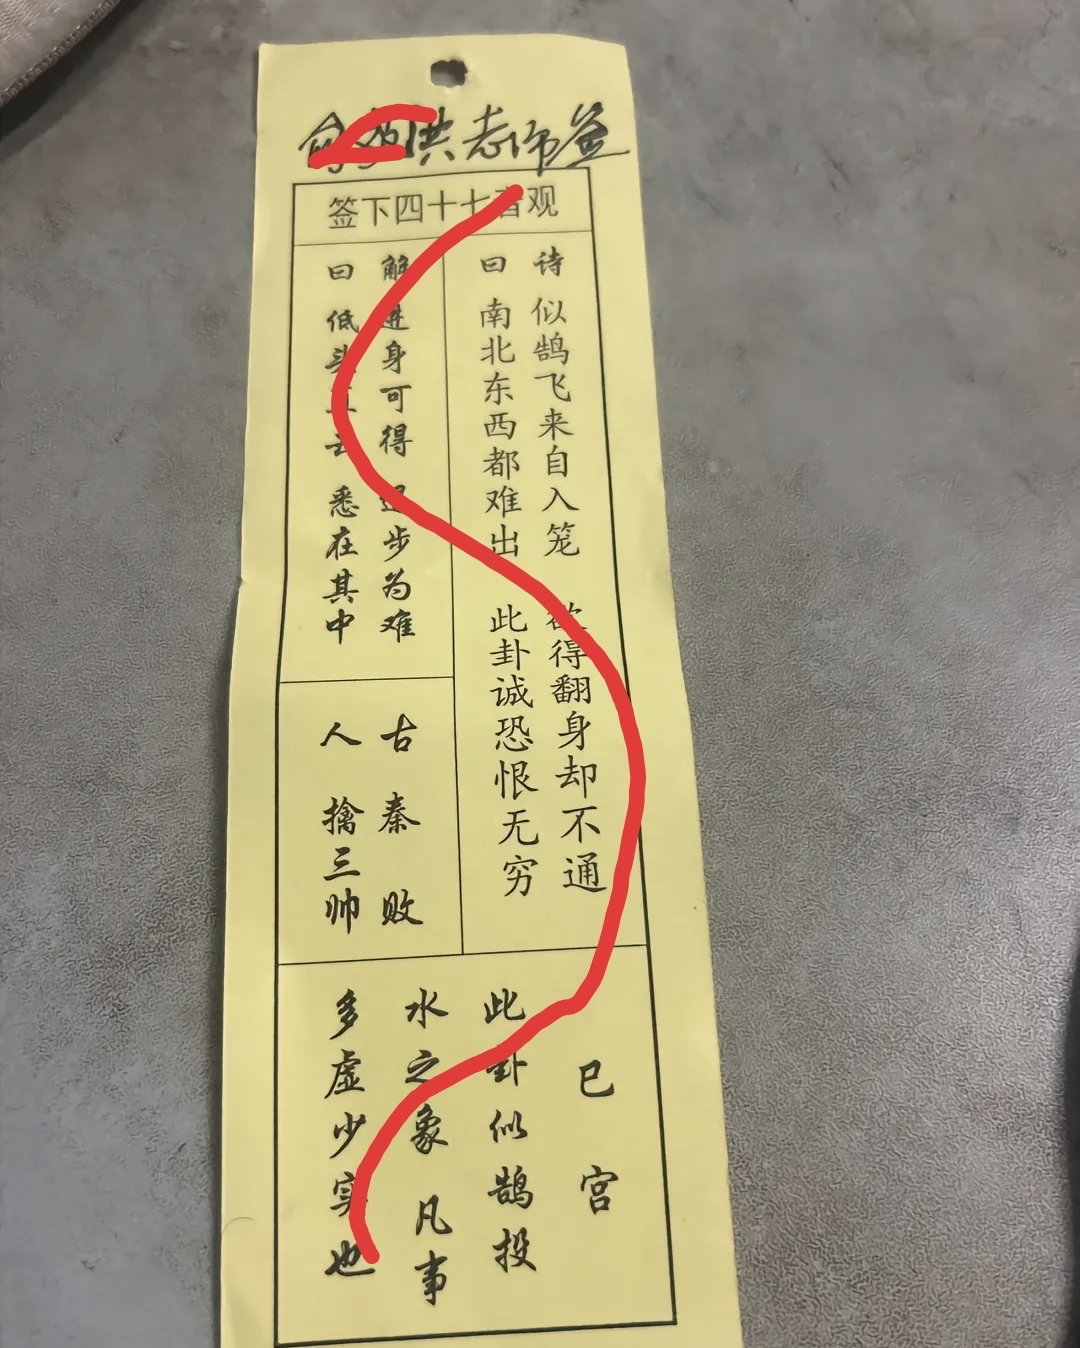 洪老师签
观音七十四下签
诗 似鹄飞来自入笼 欲得翻身却不通
曰 南北东西都难出 此卦诚恐恨无穷
解 进身可得 退步为难
曰 低头 悉在其中
古 秦 败
人 擒三帅
巳宫
此卦似鹄投
水之象 凡事
多虚少实也